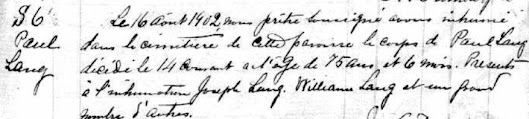 S6
Paul
Lang
Le 16 Août 1902 nous prêtre soussigné avons inhumé
dans le cimetière de cette paroisse le corps de Paul Lang
décédé le 14 courant à l'age de 75 ans et 6 mois. Présents
à l'inhumation Joseph Lang. William Lang et un grand
nombre d'autres.